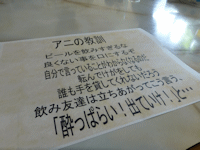 アニの教訓
ビールを飲みすぎるな
良くない事を口にするぞ
自分で言っていることがわからなくなるぞ
転んでけがをしても
誰も手を貸してくれないだろう
飲み友達は立ちあがってこう言う、
「酔っぱらい！出ていけ！」と…